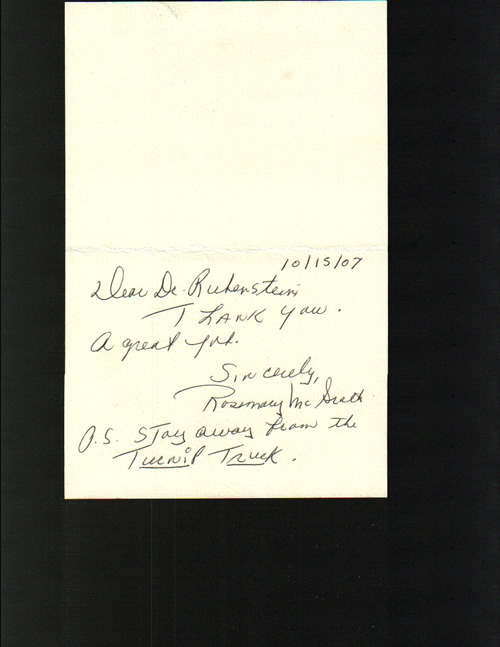 10/15/07
Dear Dr. Rubenstein
Thank you.
A great job.
Sincerely,
Rosemary McGrath
P.S. Stay away from the
Turnip Truck.